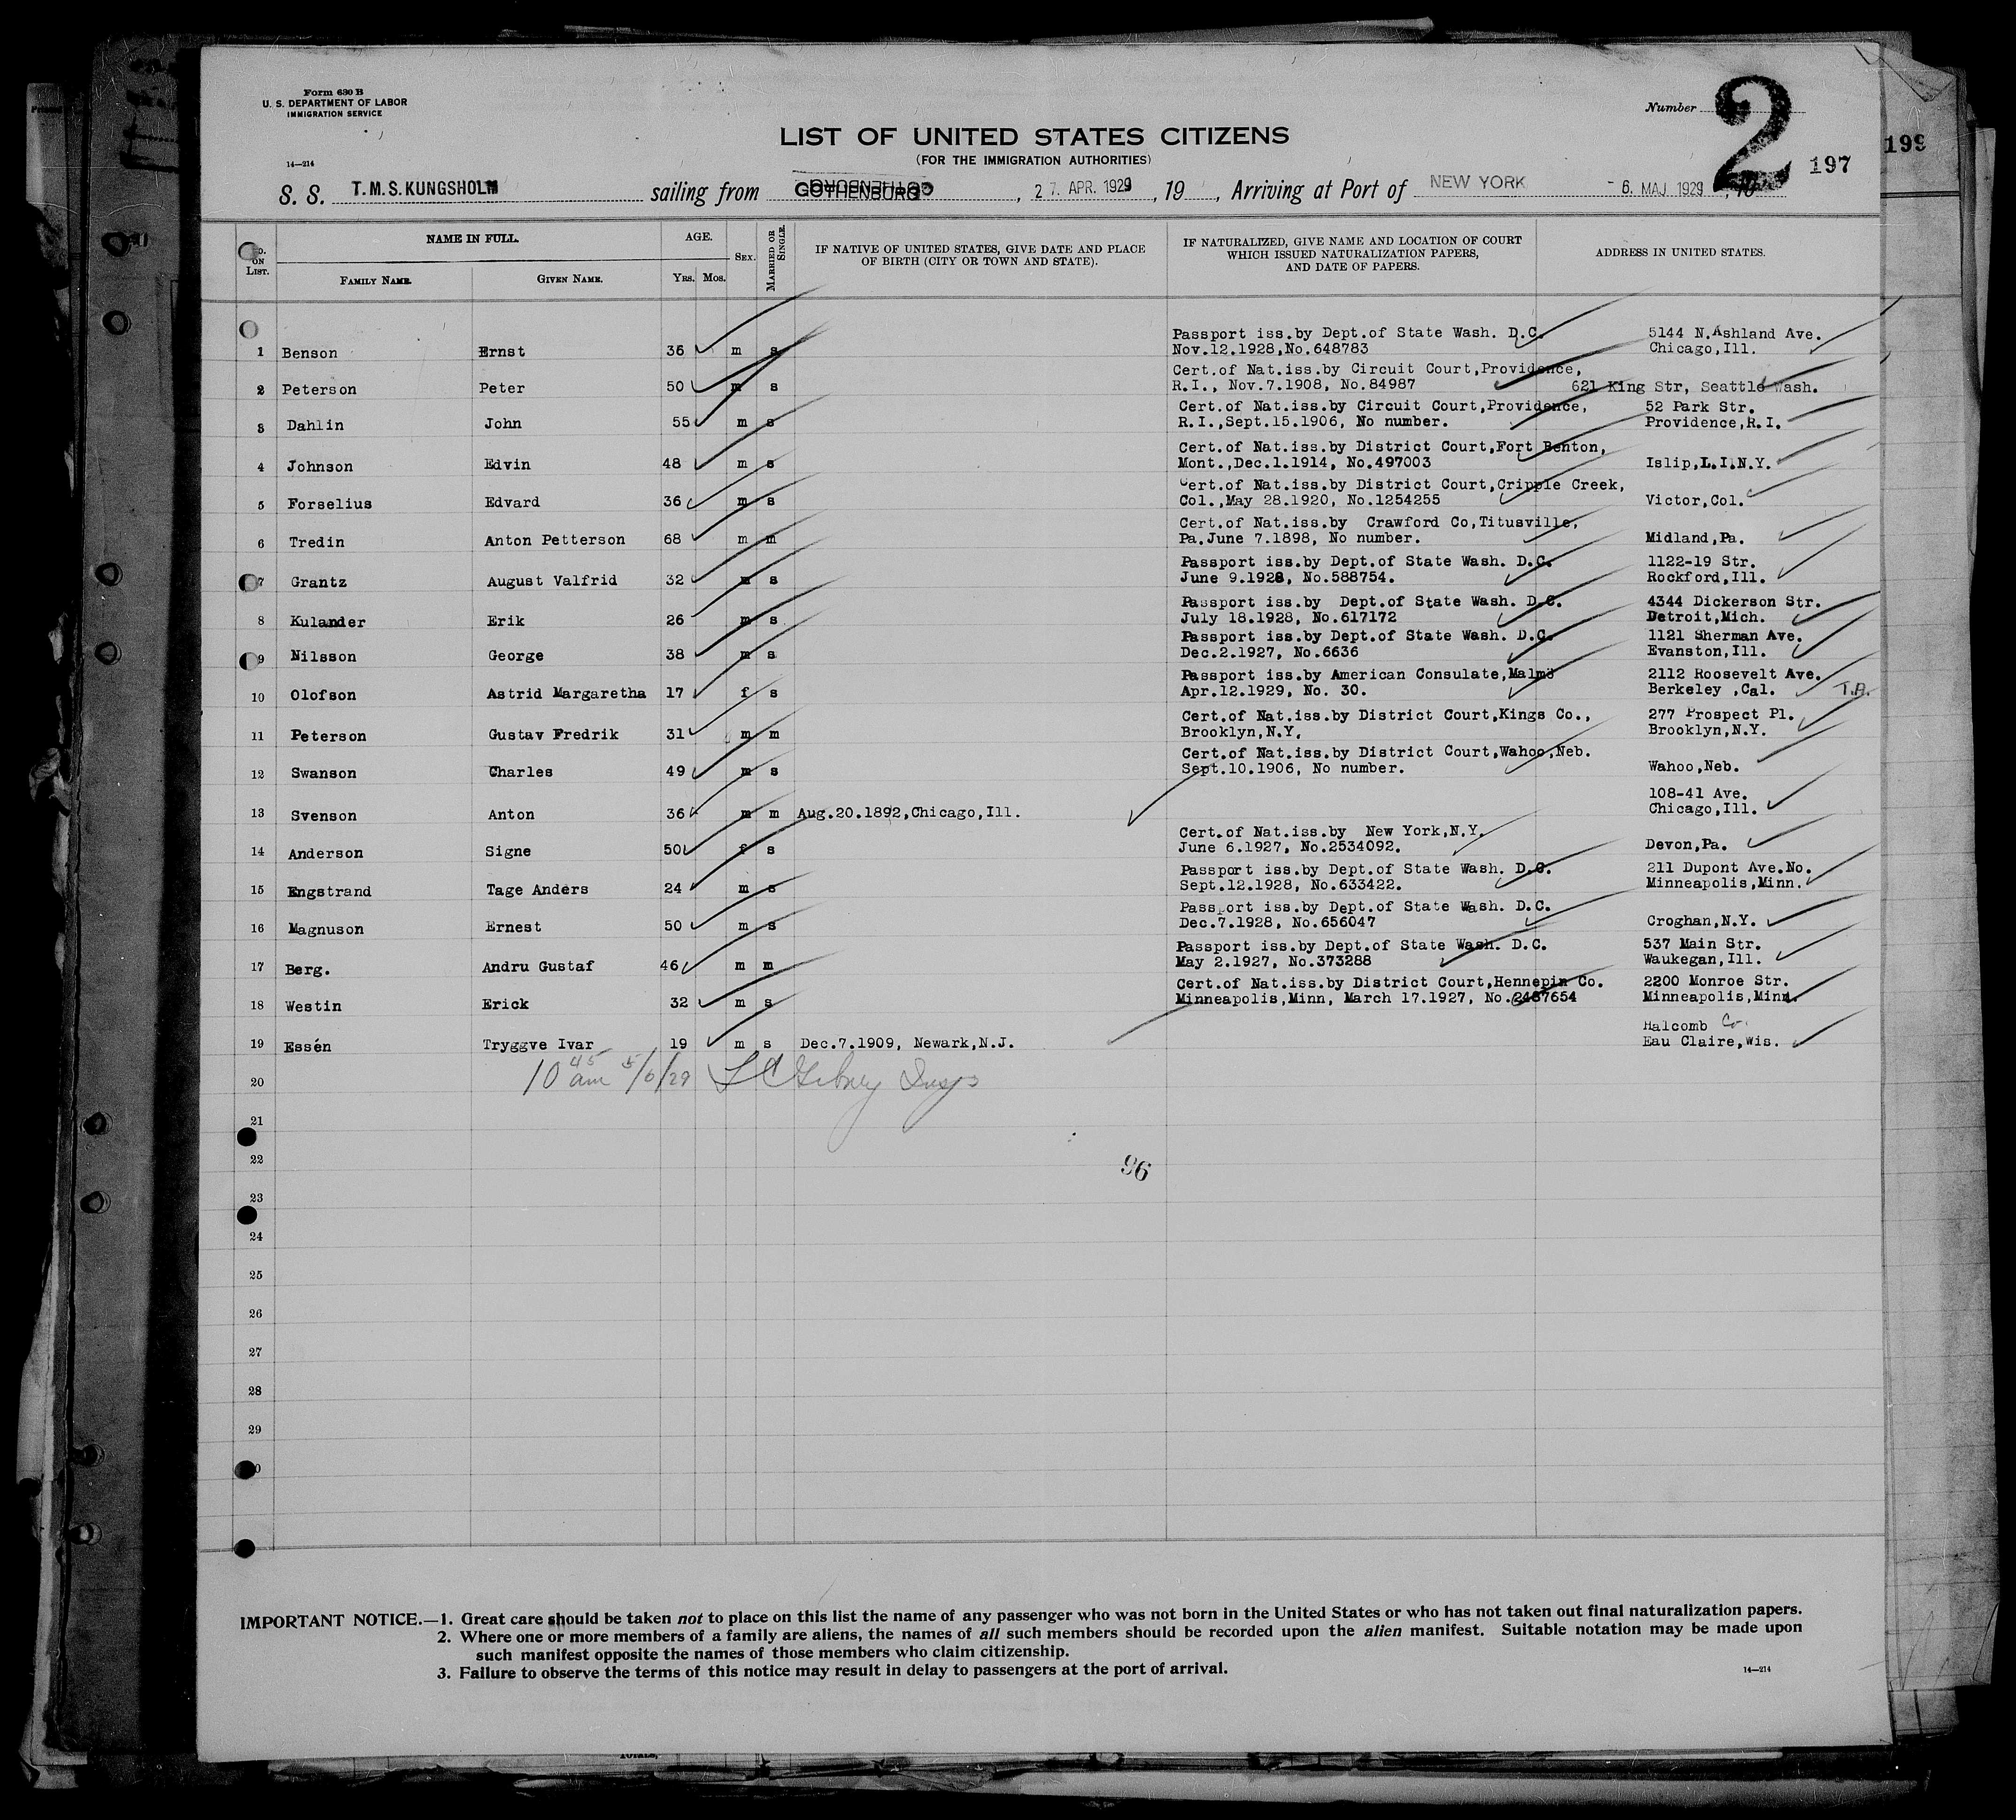 Form 630 B
U. S. DEPARTMENT OF LABOR
IMMIGRATION SERVICE
14—214
Number 2
197
199
LIST OF UNITED STATES CITIZENS
(FOR THE IMMIGRATION AUTHORITIES)
S. S. T.M.S.KUNGSHOLM sailing from GOTHENBURG, 27. APR. 1929, 19, Arriving at Port of NEW YORK -6. MAJ 1929, 19
No. ON LIST. NAME IN FULL. AGE. SEX. MARRIED OR SINGLE. IF NATIVE OF UNITED STATES, GIVE DATE AND PLACE OF BIRTH (CITY OR TOWN AND STATE). IF NATURALIZED, GIVE NAME AND LOCATION OF COURT WHICH ISSUED NATURALIZATION PAPERS, AND DATE OF PAPERS. ADDRESS IN UNITED STATES.
FAMILY NAME. GIVEN NAME. YRS. MOS.
Passport iss.by Dept.of State Wash. D.C. 5144 N.Ashland Ave.
1 Benson Ernst 36 m s Nov.12.1928,No.648783 Chicago,Ill.
Cert.of Nat.iss.by Circuit Court,Providence,
2 Peterson Peter 50 m s R.I., Nov.7.1908, No.84987 621 King Str, Seattle Wash.
Cert.of Nat.iss.by Circuit Court,Providence, 52 Park Str.
3 Dahlin John 55 m s R.I.,Sept.15.1906, No number. Providence,R.I.
Cert.of Nat.iss.by District Court,Fort Benton,
4 Johnson Edvin 48 m s Mont.,Dec.1.1914, No.497003 Islip,L.I.N.Y.
Cert.of Nat.iss.by District Court,Cripple Creek,
5 Forselius Edvard 36 m s Col.,May 28.1920, No.1254255 Victor,Col.
Cert.of Nat.iss.by Crawford Co,Titusville,
6 Tredin Anton Petterson 68 m m Pa.June 7.1898, No number. Midland,Pa.
Passport iss.by Dept.of State Wash. D.C. 1122-19 Str.
7 Grantz August Valfrid 32 m s June 9.1928, No.588754. Rockford,Ill.
Passport iss.by Dept.of State Wash. D.C. 4344 Dickerson Str.
8 Kulander Erik 26 m s July 18.1928, No.617172 Detroit,Mich.
Passport iss.by Dept.of State Wash. D.C. 1121 Sherman Ave.
9 Nilsson George 38 m s Dec.2.1927, No.6636 Evanston,Ill.
Passport iss.by American Consulate,Malmö 2112 Roosevelt Ave.
10 Olofson Astrid Margaretha 17 f s Apr.12.1929, No. 30. Berkeley ,Cal.
Cert.of Nat.iss.by District Court,Kings Co., 277 Prospect Pl.
11 Peterson Gustav Fredrik 31 m m Brooklyn,N.Y. Brooklyn,N.Y.
Cert.of Nat.iss.by District Court,Wahoo,Neb.
12 Swanson Charles 49 m s Sept.10.1906, No number. Wahoo,Neb.
108-41 Ave.
13 Svenson Anton 36 m m Aug.20.1892,Chicago,Ill. Chicago,Ill.
Cert.of Nat.iss.by New York,N.Y.
14 Anderson Signe 50 f s June 6.1927, No.2534092. Devon,Pa.
Passport iss.by Dept.of State Wash. D.C. 211 Dupont Ave.No.
15 Engstrand Tage Anders 24 m s Sept.12.1928, No.633422. Minneapolis,Minn.
Passport iss.by Dept.of State Wash. D.C.
16 Magnuson Ernest 50 m s Dec.7.1928, No.656047 Croghan,N.Y.
Passport iss.by Dept.of State Wash. D.C. 537 Main Str.
17 Berg. Andru Gustaf 46 m m May 2.1927, No.373288 Waukegan,Ill.
Cert.of Nat.iss.by District Court,Hennepin Co. 2200 Monroe Str.
18 Westin Erick 32 m s Minneapolis,Minn, March 17.1927, No.2487654 Minneapolis,Minn.
Halcomb Co.
19 Essén Tryggve Ivar 19 m s Dec.7.1909, Newark,N.J. Eau Claire,Wis.
10 45 am 5/6/29
20
21
22
96
23
24
25
26
27
28
29
IMPORTANT NOTICE.—1. Great care should be taken not to place on this list the name of any passenger who was not born in the United States or who has not taken out final naturalization papers.
2. Where one or more members of a family are aliens, the names of all such members should be recorded upon the alien manifest. Suitable notation may be made upon
such manifest opposite the names of those members who claim citizenship.
3. Failure to observe the terms of this notice may result in delay to passengers at the port of arrival.
14—214
TOTALS,